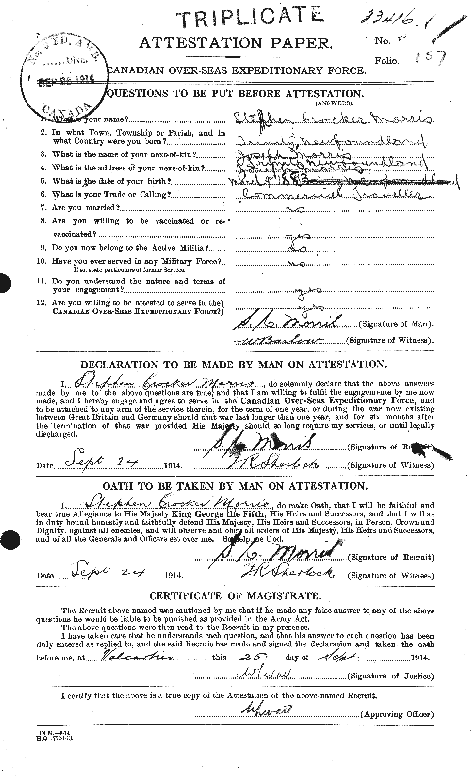 TRIPLICATE
23416.1
ATTESTATION PAPER.
No.
Folio. 157
CANADIAN OVER-SEAS EXPEDITIONARY FORCE.
CANADA
QUESTIONS TO BE PUT BEFORE ATTESTATION.
(ANSWERS)
your name? Stephen Crocker Morris
2. In what Town, Township or Parish, and in
what Country were you born? Trinity Newfoundland
3. What is the name of your next-of-kin? Joseph Morris
4. What is the address of your next-of-kin? Trinity Newfoundland
5. What is the date of your birth?
6. What is your Trade or Calling? Commercial Traveller
7. Are you married? no
8. Are you willing to be vaccinated or re-
vaccinated? yes
9. Do you now belong to the Active Militia? no
10. Have you ever served in any Military Force? no
If so, state particulars of former Service.
11. Do you understand the nature and terms of
your engagement? yes
12. Are you willing to be attested to serve in the
CANADIAN OVER-SEAS EXPEDITIONARY FORCE? yes
S. C. Morris (Signature of Man).
W Barlow (Signature of Witness).
DECLARATION TO BE MADE BY MAN ON ATTESTATION.
I, Stephen Crocker Morris, do solemnly declare that the above answers
made by me to the above questions are true, and that I am willing to fulfil the engagements by me now
made, and I hereby engage and agree to serve in the Canadian Over-Seas Expeditionary Force, and
to be attached to any arm of the service therein, for the term of one year, or during the war now existing
between Great Britain and Germany should that war last longer than one year, and for six months after
the termination of that war provided His Majesty should so long require my services, or until legally
discharged.
S. C. Morris (Signature of Recruit)
Date Sept 24 1914. (Signature of Witness)
OATH TO BE TAKEN BY MAN ON ATTESTATION.
I, Stephen Crocker Morris, do make Oath, that I will be faithful and
bear true Allegiance to His Majesty King George the Fifth, His Heirs and Successors, and that I will as
in duty bound honestly and faithfully defend His Majesty, His Heirs and Successors, in Person, Crown and
Dignity, against all enemies, and will observe and obey all orders of His Majesty, His Heirs and Successors,
and of all the Generals and Officers set over me. So help me God.
S. C. Morris (Signature of Recruit)
Date Sept 24 1914. (Signature of Witness)
CERTIFICATE OF MAGISTRATE.
The Recruit above named was cautioned by me that if he made any false answer to any of the above
questions he would be liable to be punished as provided in the Army Act.
The above questions were then read to the Recruit in my presence.
I have taken care that he understands each question, and that his answer to each question has been
duly entered as replied to, and the said Recruit has made and signed the declaration and taken the oath
before me, at Valcartier this 25 day of Sept 1914.
(Signature of Justice)
I certify that the above is a true copy of the Attestation of the above-named Recruit.
(Approving Officer)